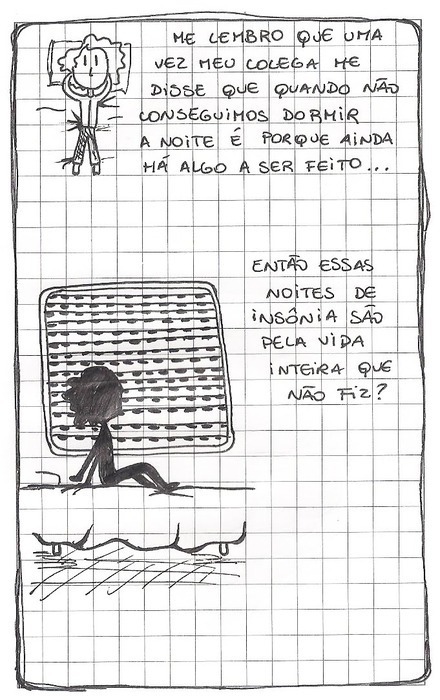 ME LEMBRO QUE UMA
VEZ MEU COLEGA ME
DISSE QUE QUANDO NÃO
CONSEGUIMOS DORMIR
A NOITE É PORQUE AINDA
HÁ ALGO A SER FEITO...
ENTÃO ESSAS
NOITES DE
INSÔNIA SÃO
PELA VIDA
INTEIRA QUE
NÃO FIZ?